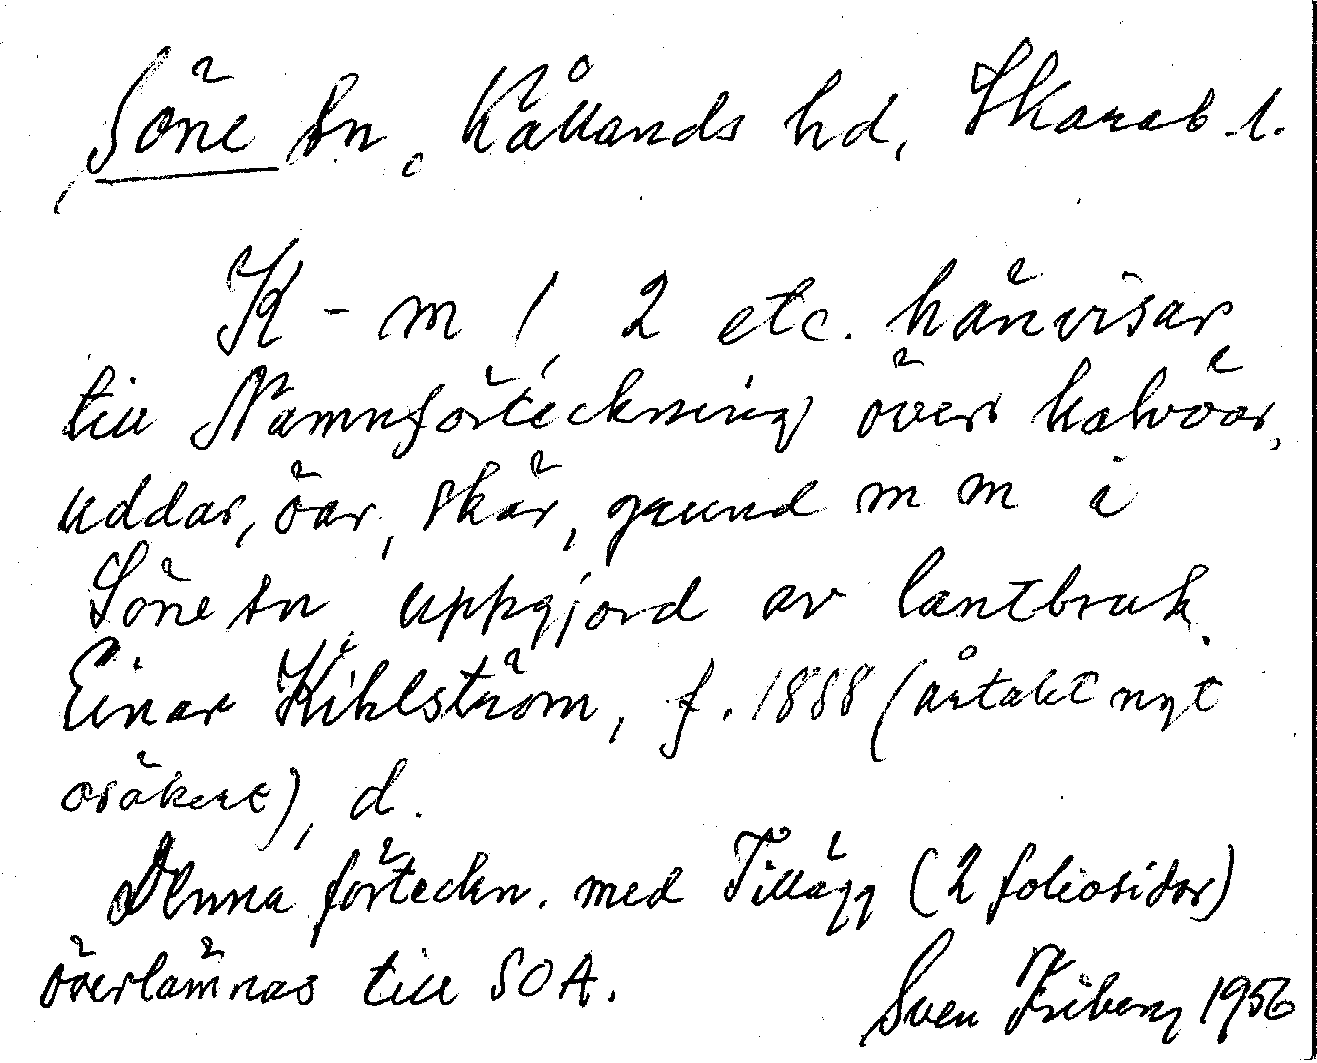 Söne sn, Kållands hd, Skarab. l.
K-m 1, 2 etc. hänvisar
till Namnförteckning över halvöar,
uddar, öar, skär, grund m m i
Söne sn, uppgjord av lantbruk.
Einar Kihlström, f. 1888 (årtalet ngt
osäkert), d.
Denna förteckn. med Tillägg (2 foliosidor)
överlämnas till SOA.
Sven Friberg 1956